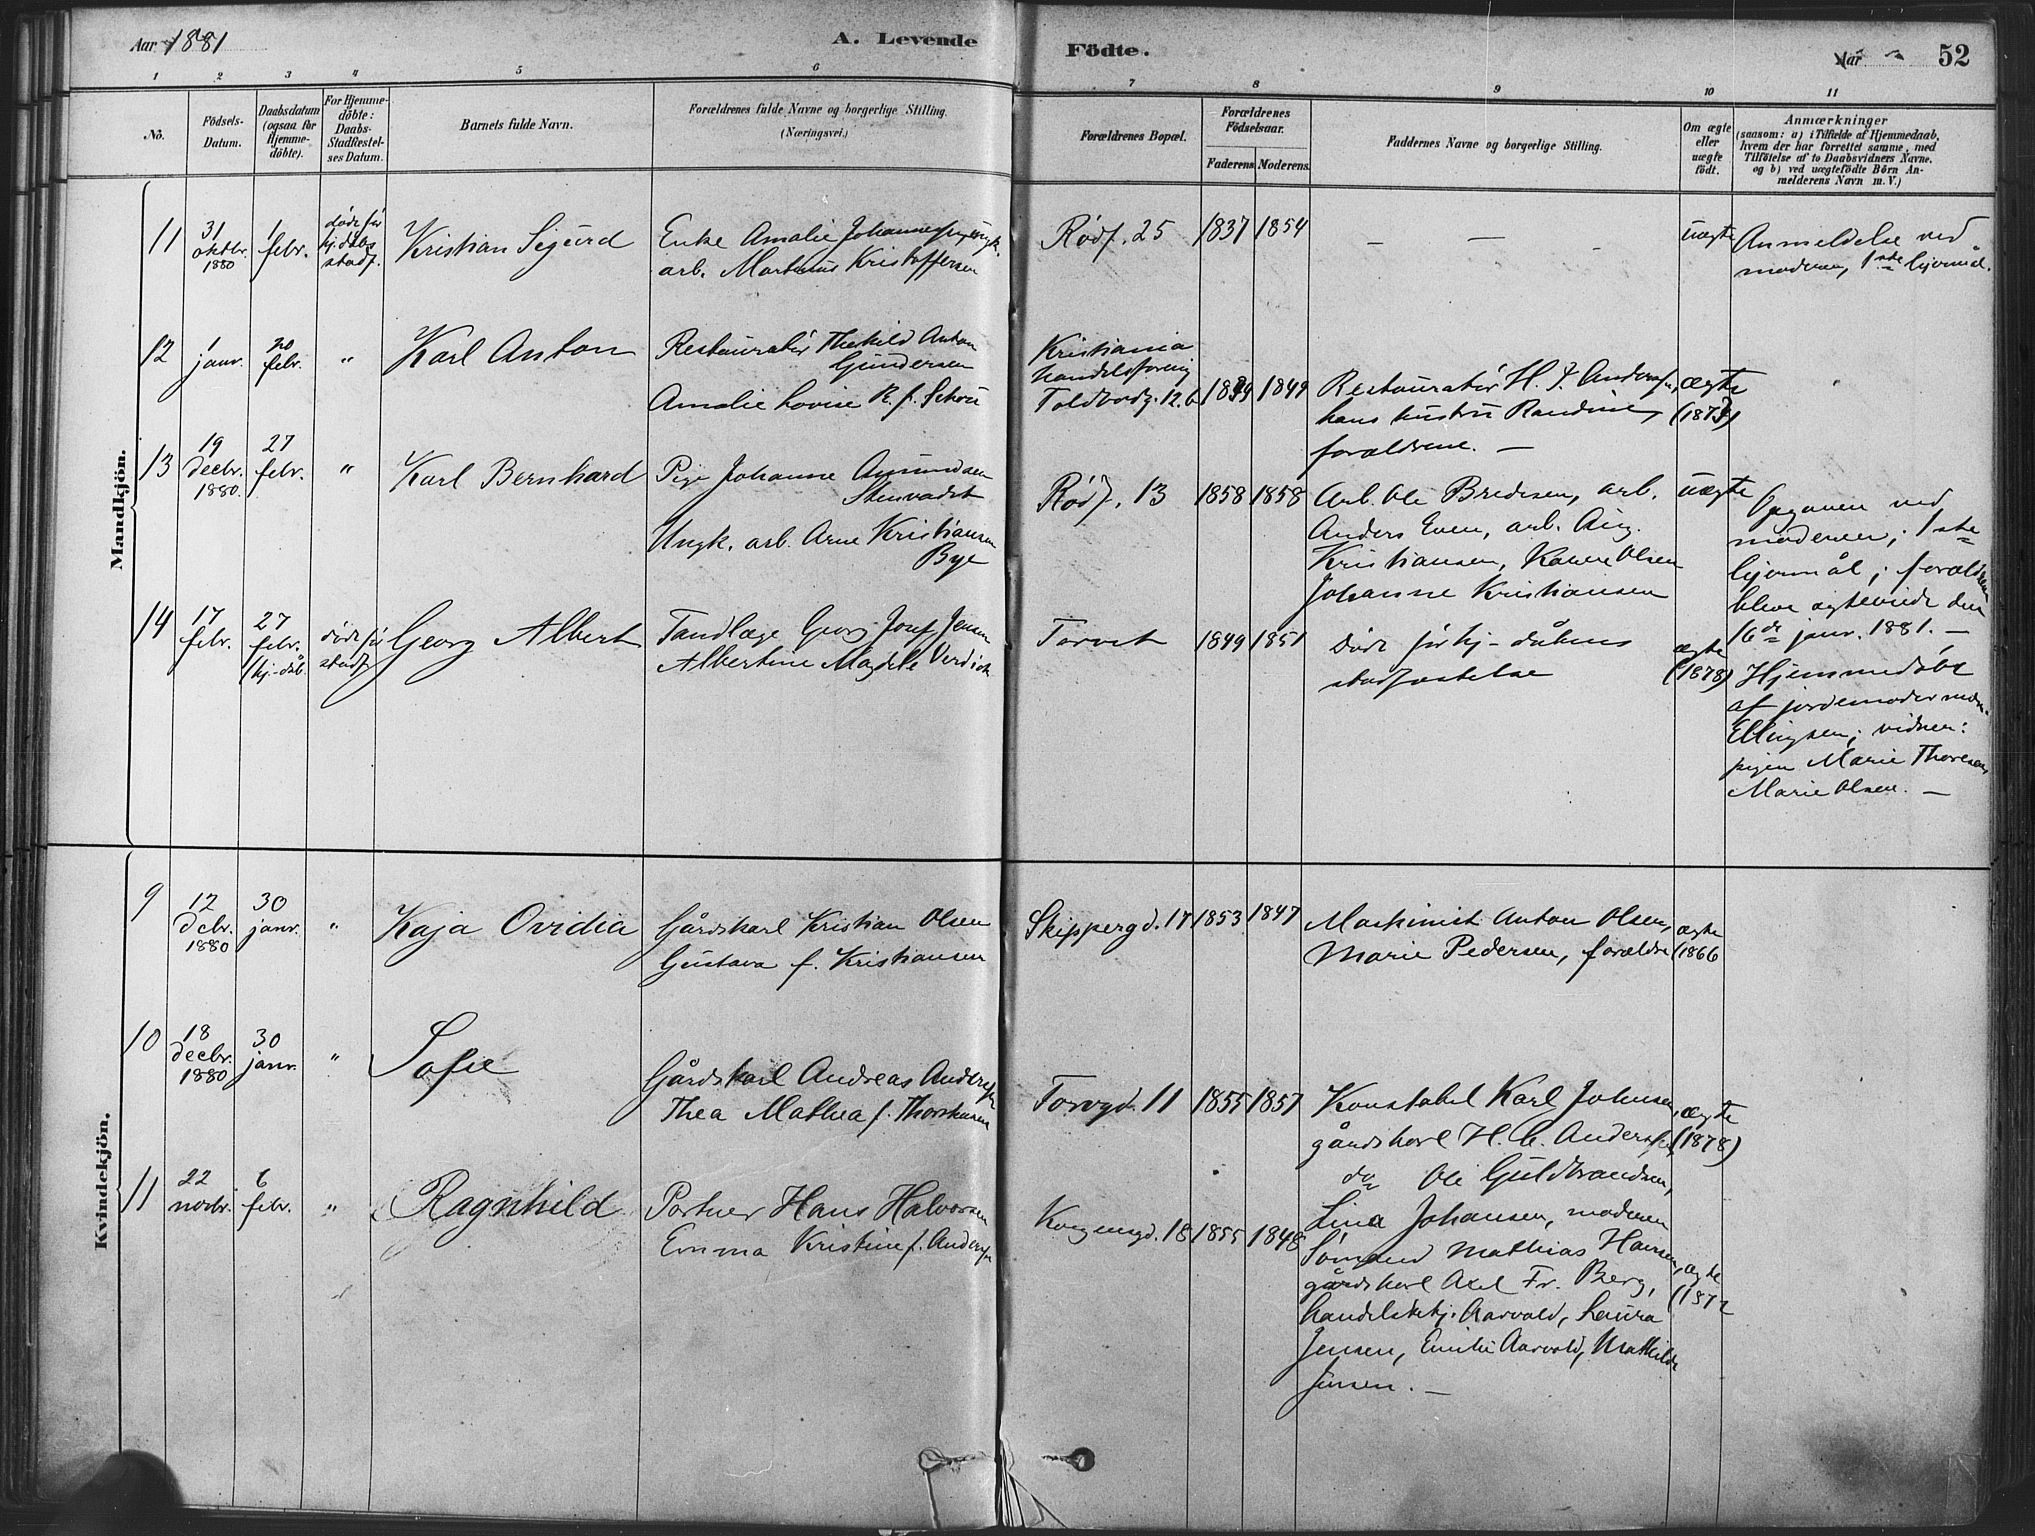 Aar 1881
A. Levende Födte.
Aar 52
1 2 3 4 5 6 7 8 9 10 11
No.
Födsels-Datum.
Daabsdatum (ogsaa for Hjemme-döbte).
For Hjemme-döbte: Daabs-Stadfæstel-ses Datum.
Barnets fulde Navn.
Forældrenes fulde Navne og borgerlige Stilling.
(Næringsvei.)
Forældrenes Bopæl.
Forældrenes Födselsaar.
Faderens. Moderens.
Faddernes Navne og borgerlige Stilling.
Om ægte eller uægte födt.
Anmærkninger
(saasom: a) i Tilfælde af Hjemmedaab, hvem der har forrettet samme, med Tilföielse af to Daabsvidners Navne, og b) ved uægtefödte Börn An-melderens Navn m. V.)
Mandkjön.
11 31 oktbr. 1880 1 febr. døde før hj. dåbs stadf. Kristian Sigurd
Enke Amalie
arb. Martinus Kristoffersen
Rødf. 25 1837 1854 — — - uægte
Anmeldelse ved
moderen, 1ste
12 1 janr. 20 febr. " Karl Anton
Restauratør Thekild Anton
Gundersen
Amalie Lovise R. f. Schou
Kristiania
handelsforening
Toldbodg. 12.b 1849
Restauratør H. Andersen,
hans hustru Randine,
forældrene. —
ægte
13 19 decbr. 1880. 27 febr. " Karl Bernhard
Pige Johanne Amundsen
Stenvadet
Ungk. arb. Arne Kristiansen
Bye
Rødf. 13 1858 1858
Arb. Ole Bredesen, arb.
Anders Even, arb. Aug.
Kristiansen, Karen Olsen
Johanne Kristiansen
uægte
Opgaven ved
moderen; 1ste
lejermål; forældrene
bleve ægteviede den
16de janr. 1881. —
14 17 febr. 27 febr. (hj.-dåb døde før stadf Georg Albert
Tandlæge Georg Josef Jensen
Albertine Magdele
Torvet 1849 1851
Døde før hj-dåbens
stadfæstelse
ægte (1878)
Hjemmedøbt
af jordemoder
Ellingsen; vidner:
pigen Marie Thoresen,
Marie Olsen. —
Kvindekjön.
9 12 debr. 1880 30 janr. " Kaja Ovidia
Gårdskarl Kristian Olsen
Gustava f. Kristiansen
Skippergd. 17 1853 1847
Maskinist Anton Olsen,
Marie Pedersen, forældre
ægte (1866
10 18 decbr. 1880 30 janr. " Sofie
Gårdskarl Andreas Andersen
Thea Mathea f.
Torvgd. 11 1855 1857
Konstabel Karl Johnsen,
gårdskarl H. C. Andersen,
do Ole Guldbrandsen,
Lina Johansen, moderen
ægte (1878)
11 22 novbr. 6 febr. " Ragnhild
Portner Hans Halvorsen
Emma Kristine f. Andersen
Kongensgd. 18 1855 1848
Sømand Mathias Hansen,
gårdskarl Axel Fr. Berg,
handelsbetj. Aarvold, Laura
Jensen, Emilie Aarvold, Mathilde
Jensen. —
ægte (1872